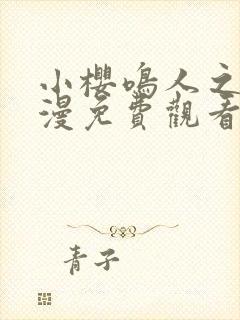 小櫻鳴人之
漫免費觀看
青子